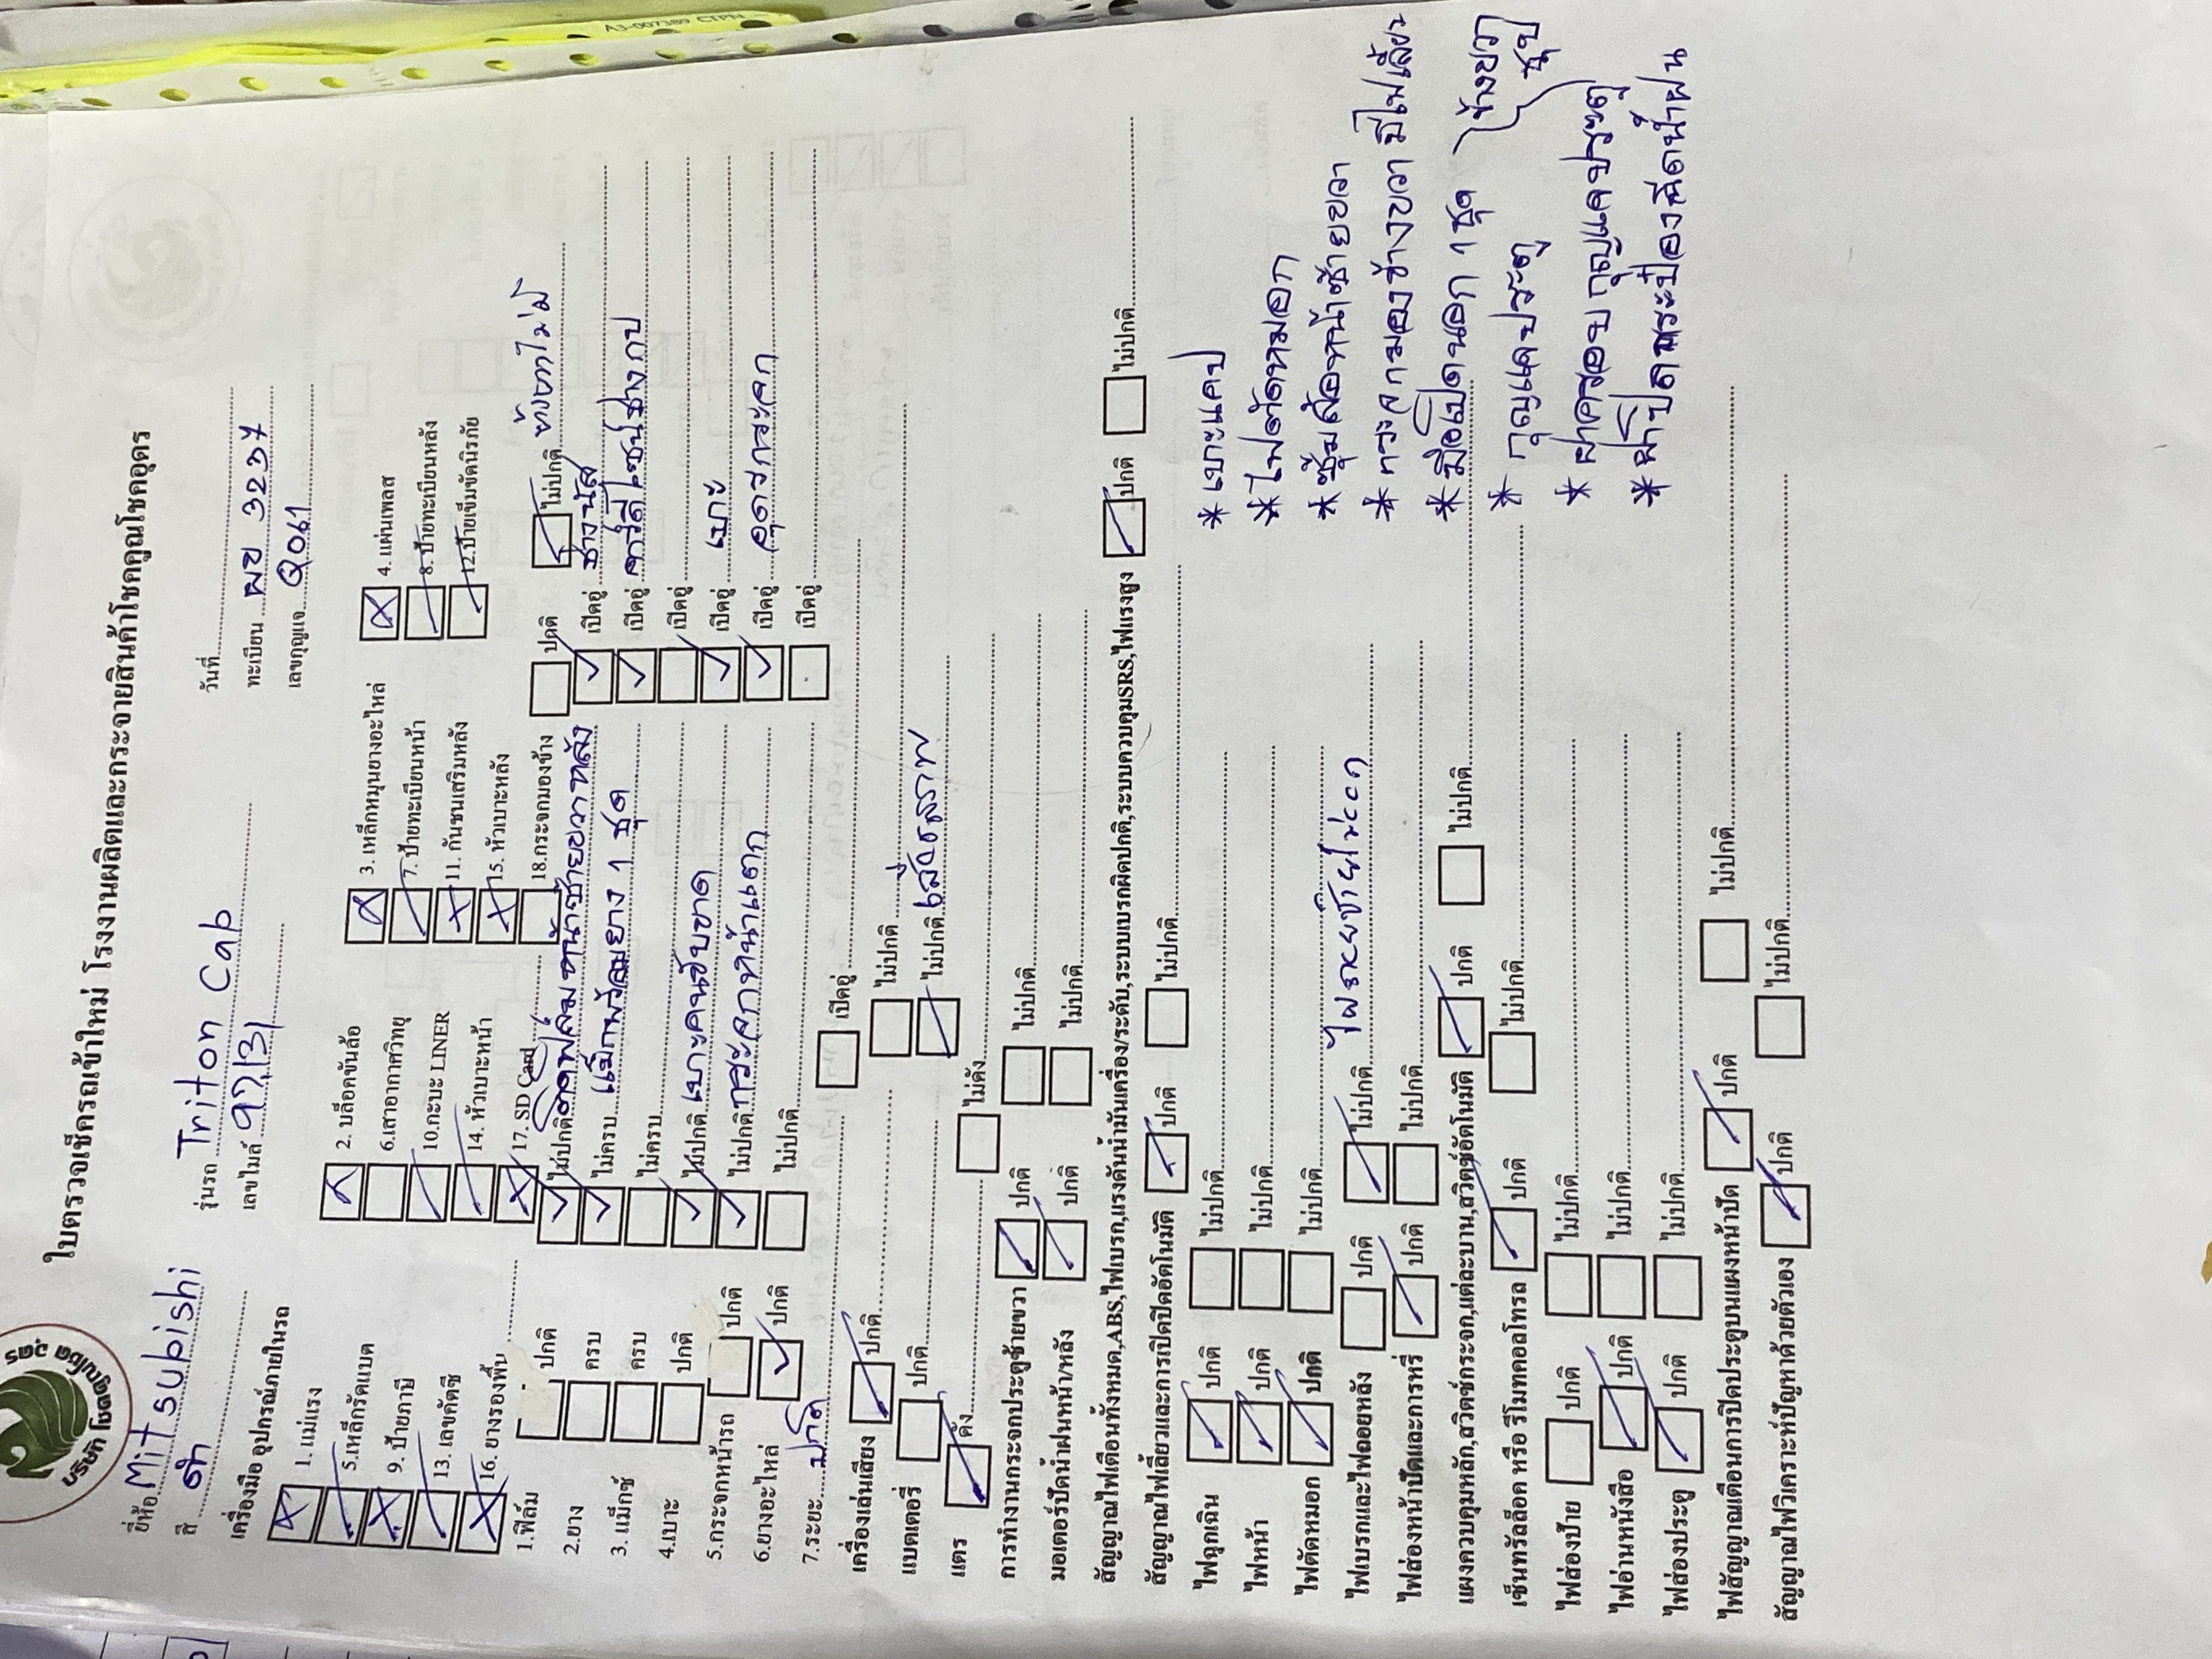 A3-007389 CTPN
บริษัท โชคคูณโชค อุดร
ใบตรวจเช็ครถเข้าใหม่ โรงงานผลิตและกระจายสินค้าโชคคูณโชคอุดร
ยี่ห้อ Mitsubishi รุ่นรถ Triton Cab วันที่
สี ดำ เลขไมล์ ทะเบียน ผข 3237
เลขกุญแจ Q061
เครื่องมือ อุปกรณ์ภายในรถ
1. แม่แรง 2. บล็อคขันล้อ 3. เหล็กหมุนยางอะไหล่ 4. แผ่นเพลส
5.เหล็กรัดแบต 6.เสาอากาศวิทยุ 7. ป้ายทะเบียนหน้า 8.ป้ายทะเบียนหลัง
9. ป้ายภาษี 10.กะบะ LINER 11. กันชนเสริมหลัง 12.ป้ายเข็มขัดนิรภัย
13. เลขคัตซี 14. หัวเบาะหน้า 15. หัวเบาะหลัง
16. ยางรองพื้น 17. SD Card 18.กระจกมองข้าง ปกติ ไม่ปกติ ข้างขวาไม่มี
1.ฟิล์ม ปกติ ไม่ปกติ ติดฟิล์มหน้าซ้ายขวาหลัง เปิดอู่ ช่างนัส
2.ยาง ครบ ไม่ครบ แม็กพร้อมยาง 1 ชุด เปิดอู่
3. แม็กซ์ ครบ ไม่ครบ เปิดอู่
4.เบาะ ปกติ ไม่ปกติ เบาะคนขับขาด เปิดอู่ เบาะ
5.กระจกหน้ารถ ปกติ ไม่ปกติ กระจกหน้าแตก เปิดอู่ อุดรกระจก
6.ยางอะไหล่ ปกติ ไม่ปกติ เปิดอู่
7.ระยะ ปกติ เปิดอู่
เครื่องเล่นเสียง ปกติ ไม่ปกติ
แบตเตอรี่ ปกติ ไม่ปกติ เสื่อมสภาพ
แตร ดัง ไม่ดัง
การทำงานกระจกประตูซ้ายขวา ปกติ ไม่ปกติ
มอเตอร์ปัดน้ำฝนหน้า/หลัง ปกติ ไม่ปกติ
สัญญาณไฟเตือนทั้งหมด,ABS,ไฟเบรก,แรงดันน้ำมันเครื่อง/ระดับ,ระบบเบรกผิดปกติ,ระบบควบคุมSRS,ไฟแรงสูง ปกติ ไม่ปกติ
สัญญาณไฟเลี้ยวและการเปิดปิดอัตโนมัติ ปกติ ไม่ปกติ
ไฟฉุกเฉิน ปกติ ไม่ปกติ
ไฟหน้า ปกติ ไม่ปกติ
ไฟตัดหมอก ปกติ ไม่ปกติ
ไฟเบรกและไฟถอยหลัง ปกติ ไม่ปกติ
ไฟส่องหน้าปัดและการหรี่ ปกติ ไม่ปกติ
แผงควบคุมหลัก,สวิตช์กระจก,แต่ละบาน,สวิตช์อัตโนมัติ ปกติ ไม่ปกติ
เซ็นทรัลล็อค หรือ รีโมทคอลโทรล ปกติ ไม่ปกติ
ไฟส่องป้าย ปกติ ไม่ปกติ
ไฟอ่านหนังสือ ปกติ ไม่ปกติ
ไฟส่องประตู ปกติ ไม่ปกติ
ไฟสัญญาณเตือนการปิดประตูบนแผงหน้าปัด ปกติ ไม่ปกติ
สัญญาณไฟวิเคราะห์ปัญหาด้วยตัวเอง ปกติ ไม่ปกติ
* เบาะแคป
* ไฟตัดหมอก
* ซุ้มล้อหน้าซ้ายขวา
* กระจกมองข้างขวา มีไฟเลี้ยว
* มือเปิดนอก 1 ชุด ข้างขวา
* กุญแจประตู
* ฝาครอบกุญแจประตู
* ฝาปิดกระป๋องฉีดน้ำฝน